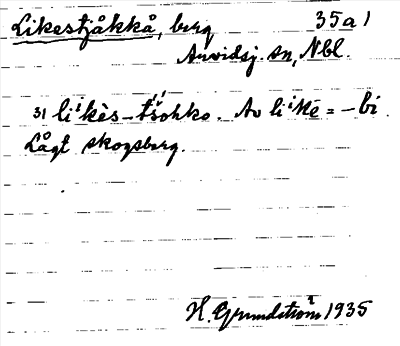 Likestjåkkå, berg 35a1
Arvidsj. sn, Nbl.
31 liˈkēs-tšohko. Av liˈkē = -bi.
Lågt skogsberg.
H. Grundström 1935